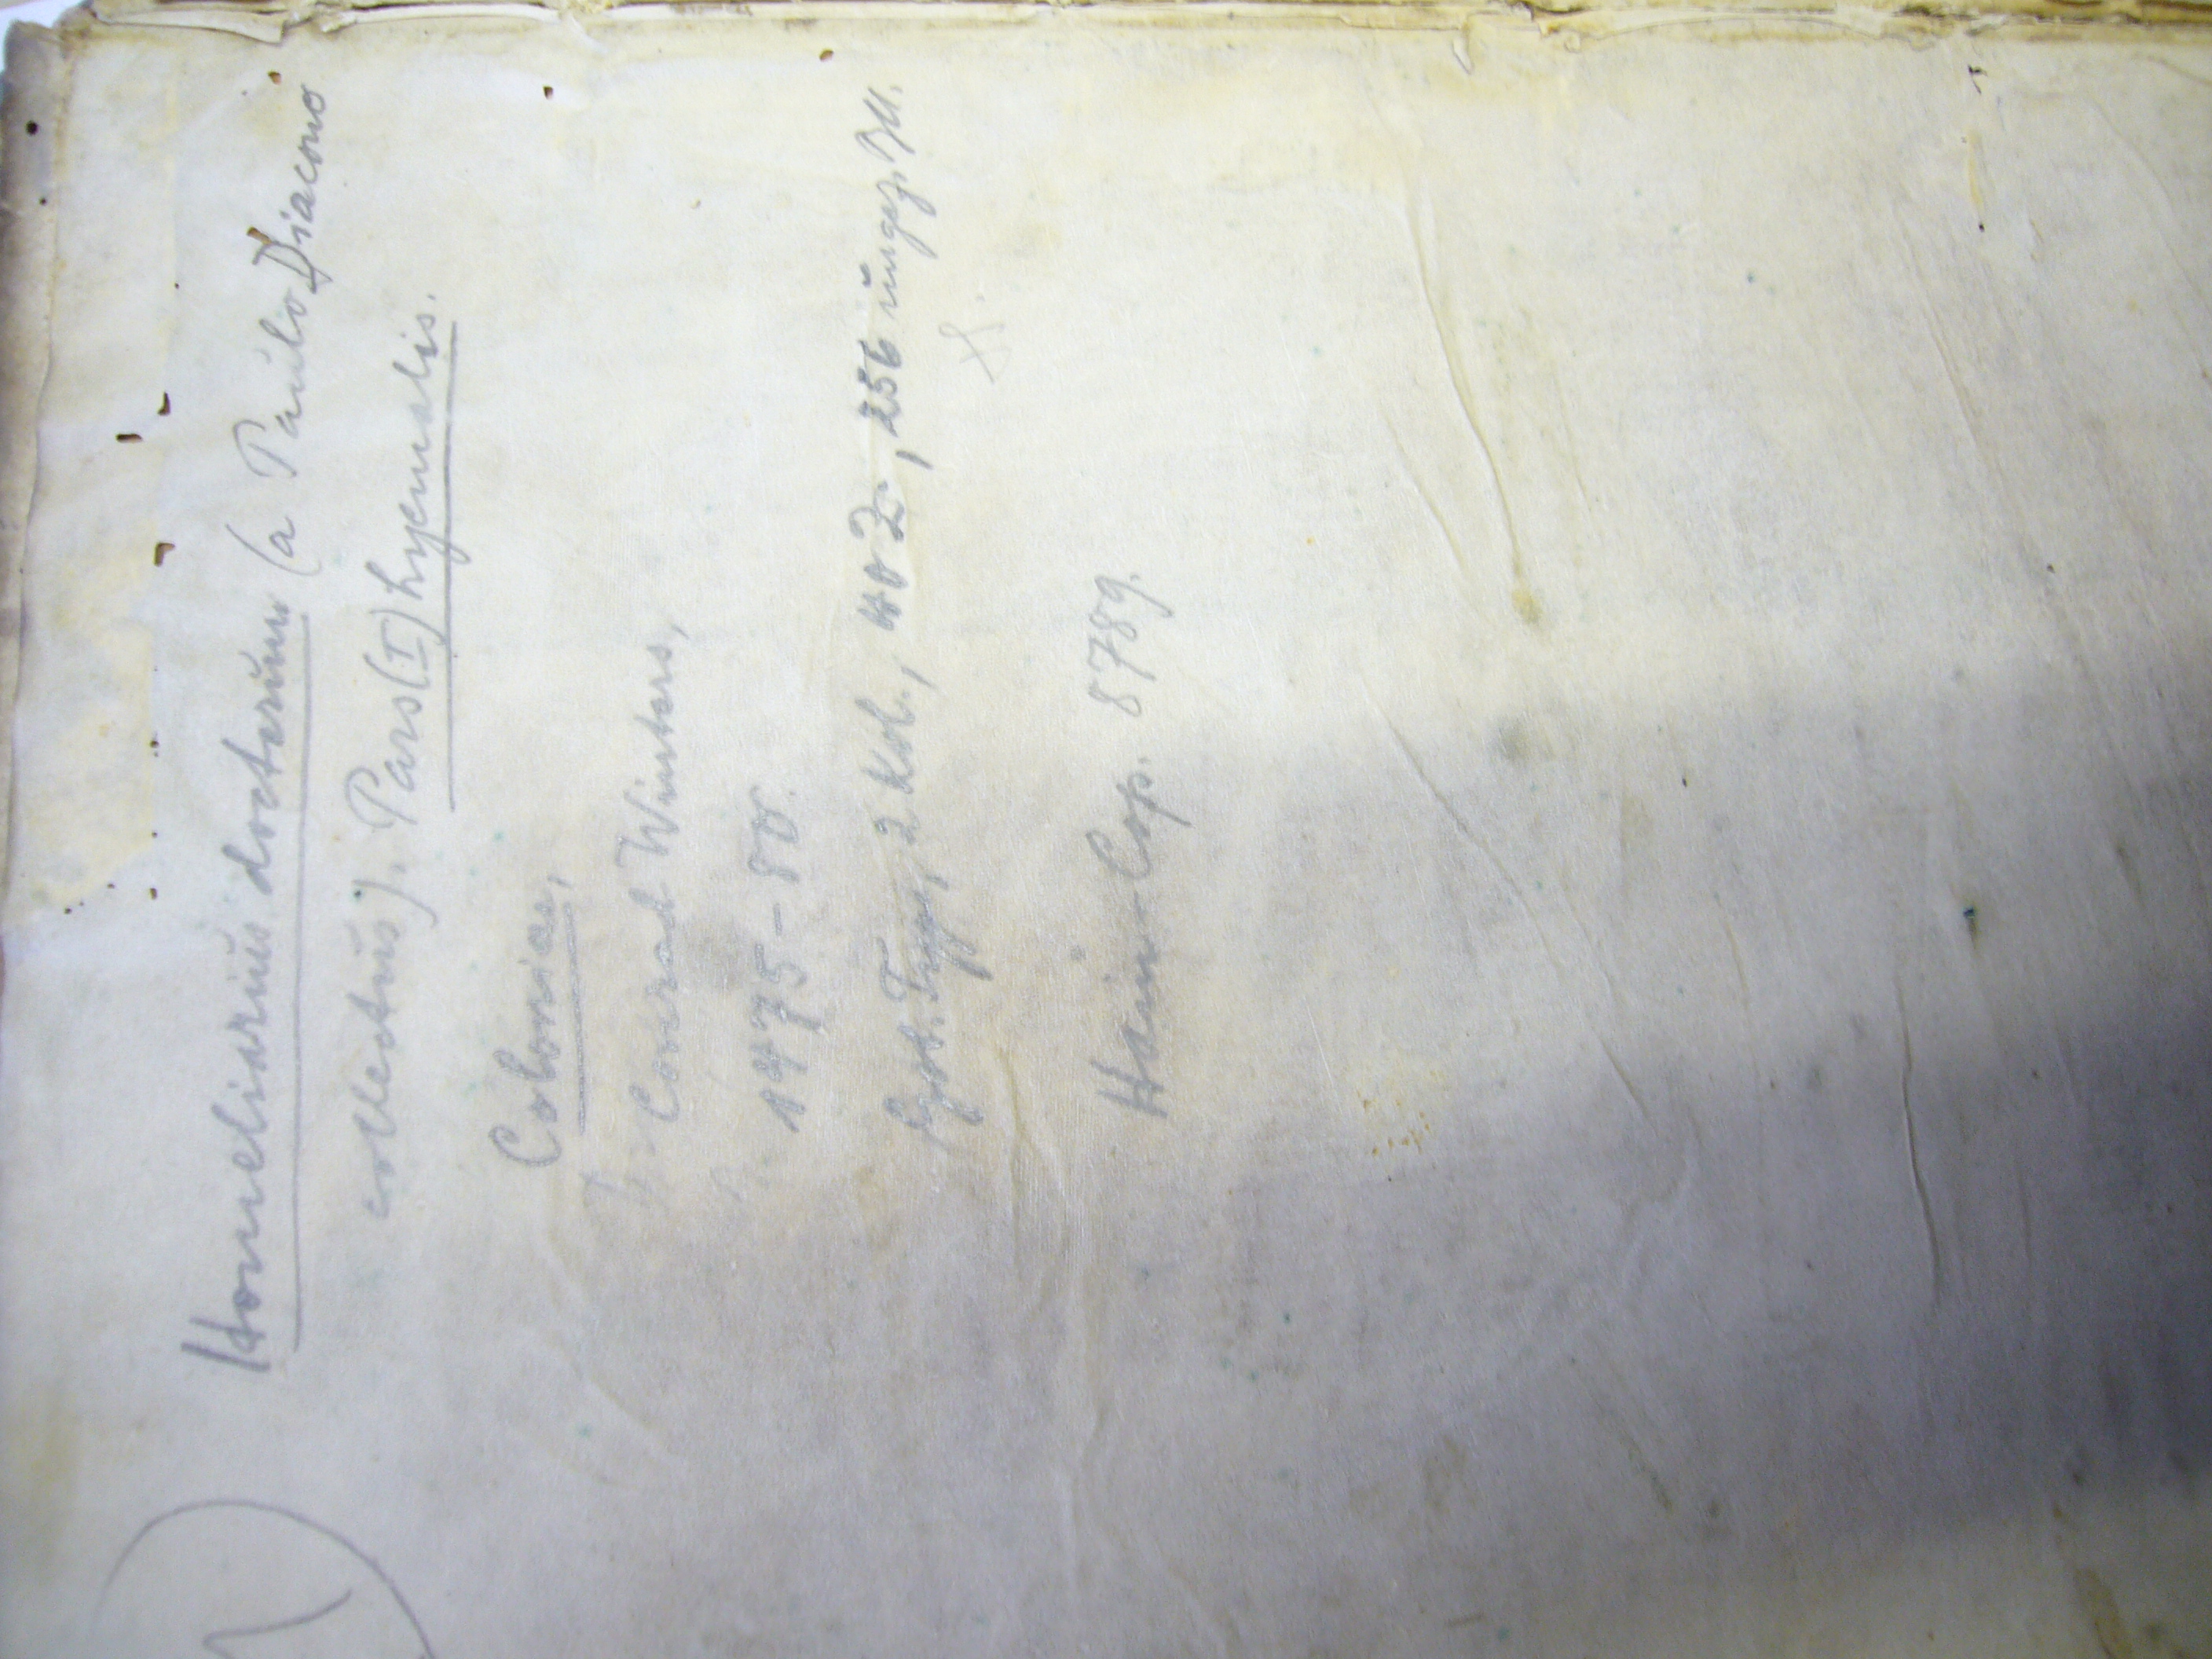 Homeliarius doctorum (a Paulo Diacono
collectus). Pars (I) hyemalis.
Coloniae,
Conrad Winters,
1475-80.
got. Typ., 2 Kol., 40 Z., 256 ungez. Bll.
Hain-Cop. 8789.